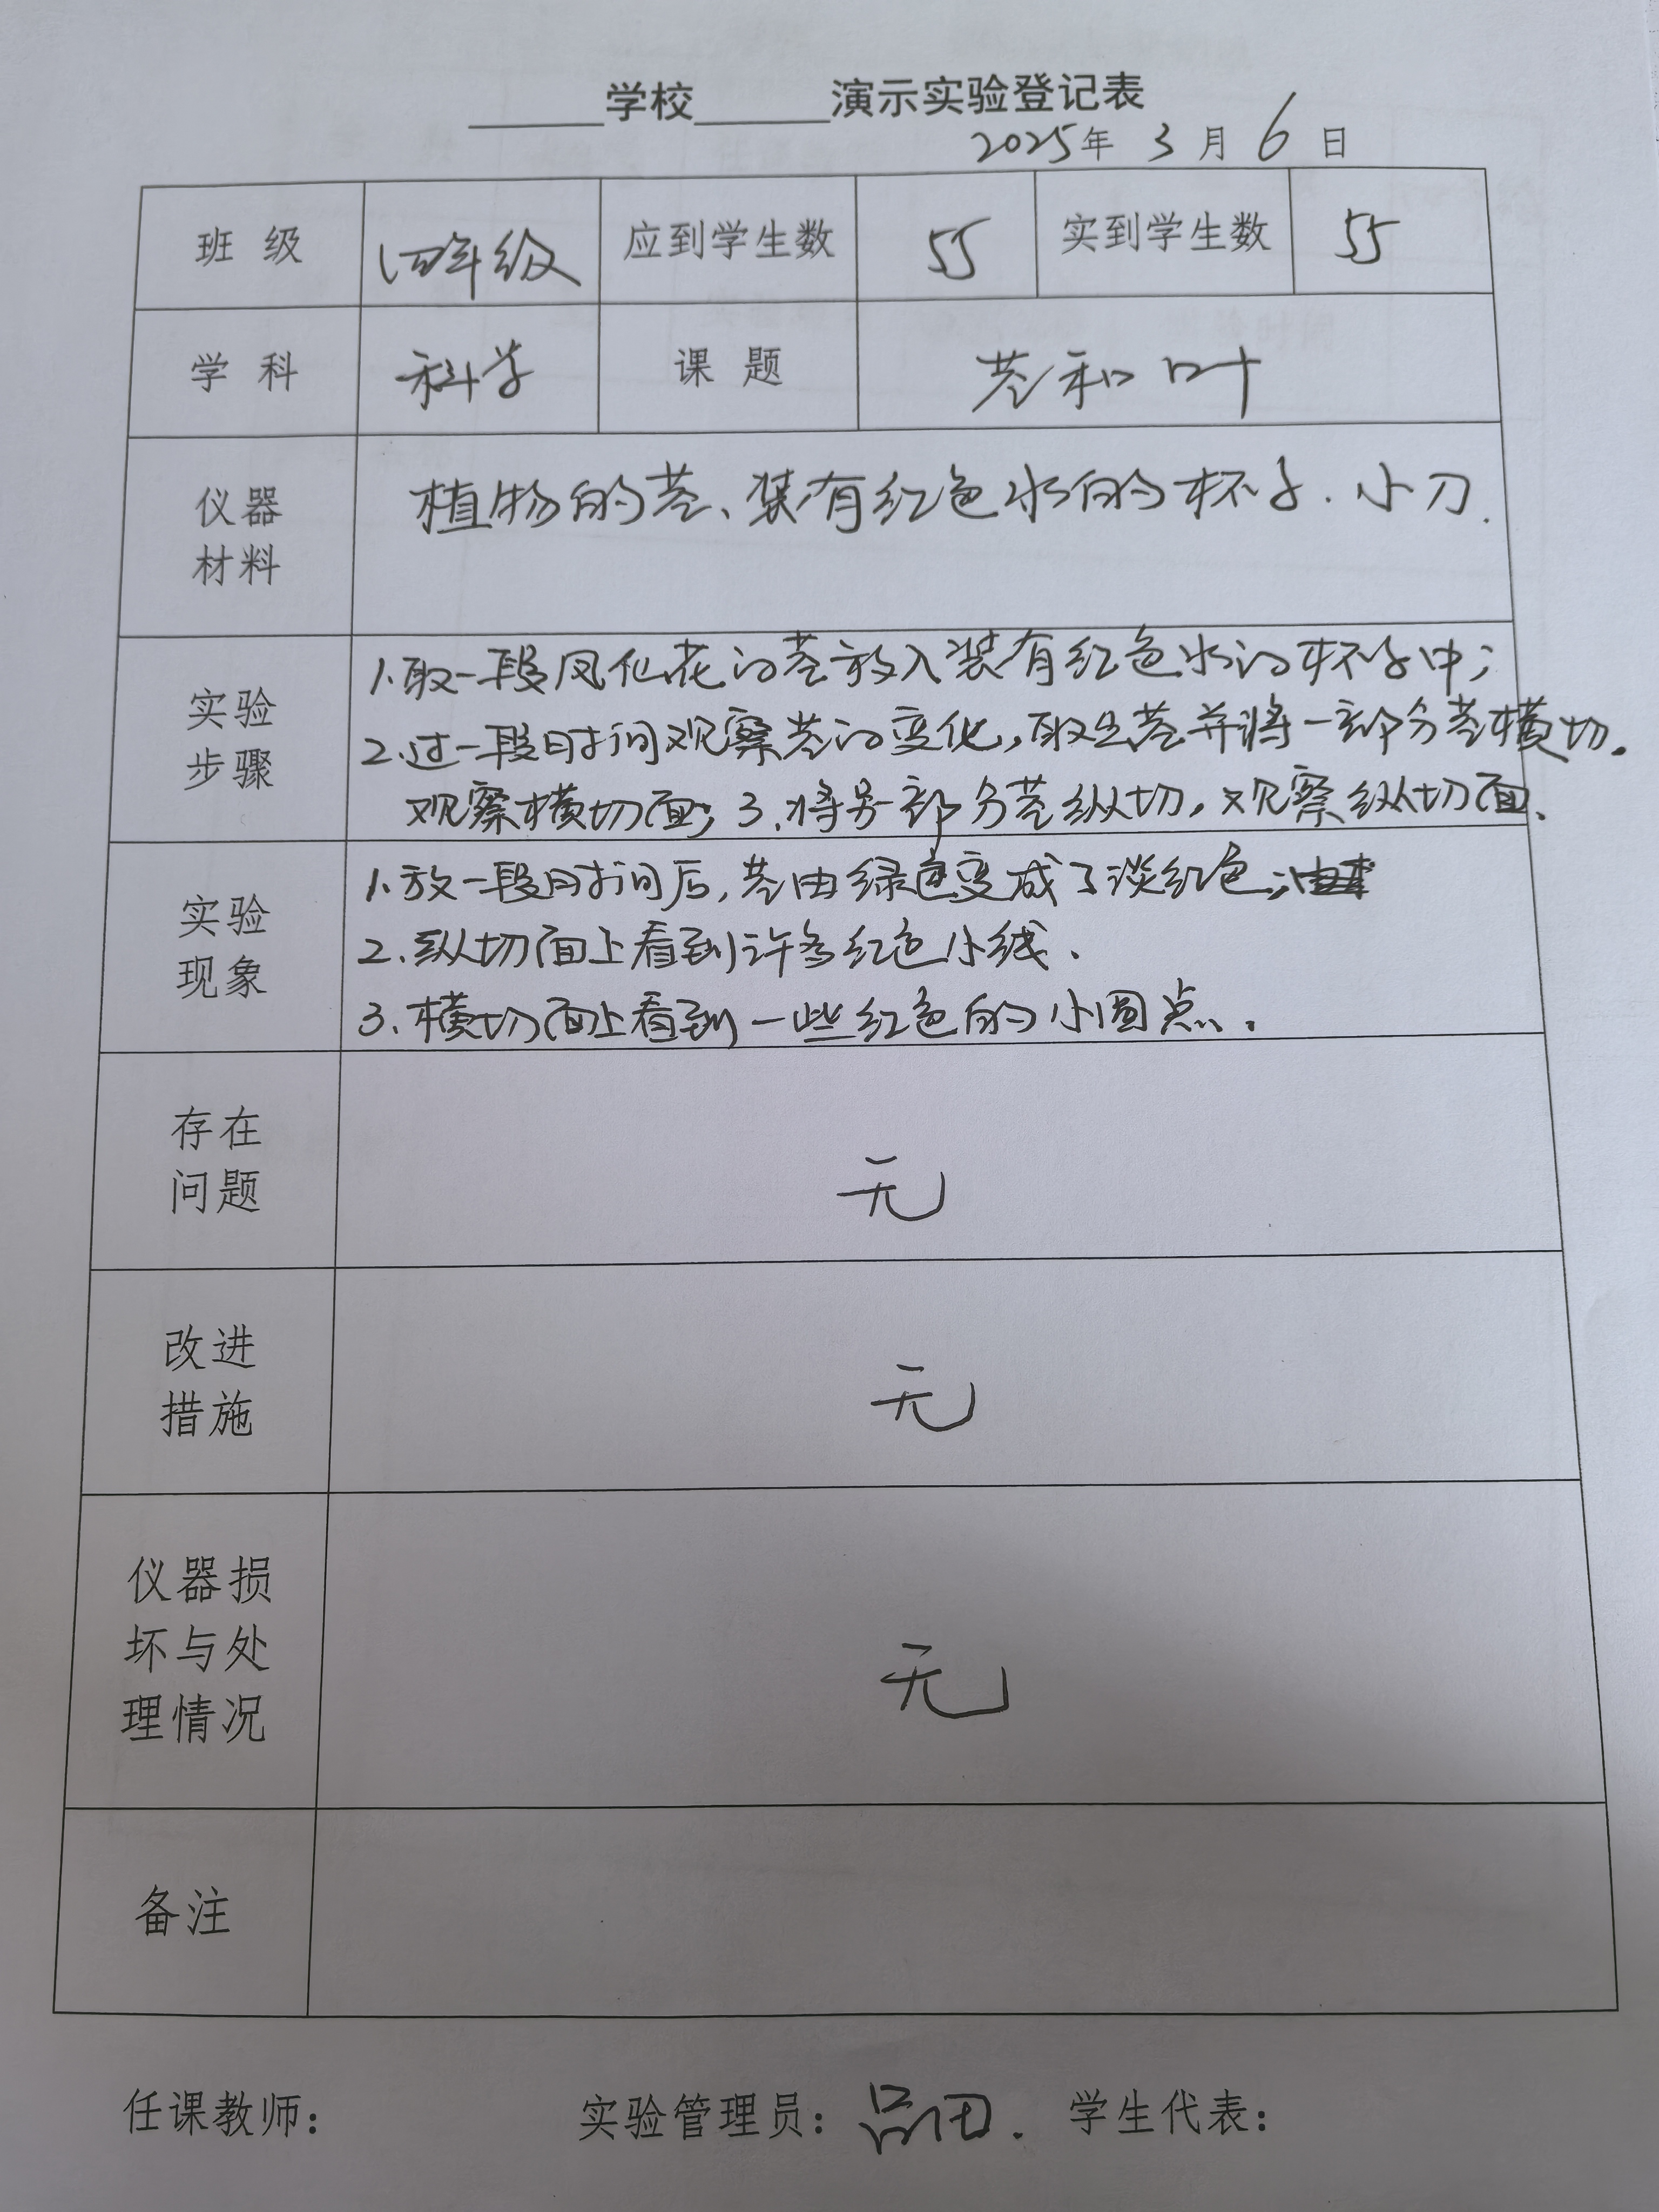 ______学校______演示实验登记表
2025年 3 月 6 日
班 级 四年级 应到学生数 55 实到学生数 55
学 科 科学 课 题 茎和叶
仪器
材料
植物的茎、装有红色水的杯子.小刀.
实验
步骤
1.取一段凤仙花的茎放入装有红色水的杯子中;
2.过一段时间观察茎的变化,取出茎并将一部分茎横切。
观察横切面;3.将另一部分茎纵切,观察纵切面.
实验
现象
1.放一段时间后,茎由绿色变成了淡红色;
2.纵切面上看到许多红色小线.
3.横切面上看到一些红色的小圆点.
存在
问题
无
改进
措施
无
仪器损
坏与处
理情况
无
备注
任课教师: 实验管理员: 学生代表: